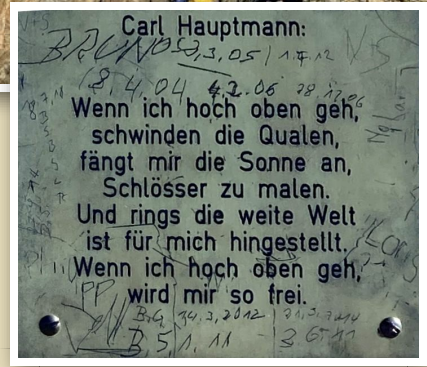 Carl Hauptmann:
BRUNO 3,3,05 1.7.12
8,4,04 06 28.12.06
Wenn ich hoch oben geh,
schwinden die Qualen,
fängt mir die Sonne an,
Schlösser zu malen.
Und rings die weite Welt
ist für mich hingestellt.
Wenn ich hoch oben geh,
wird mir so frei.
PP
B.G.
B,5,1.11